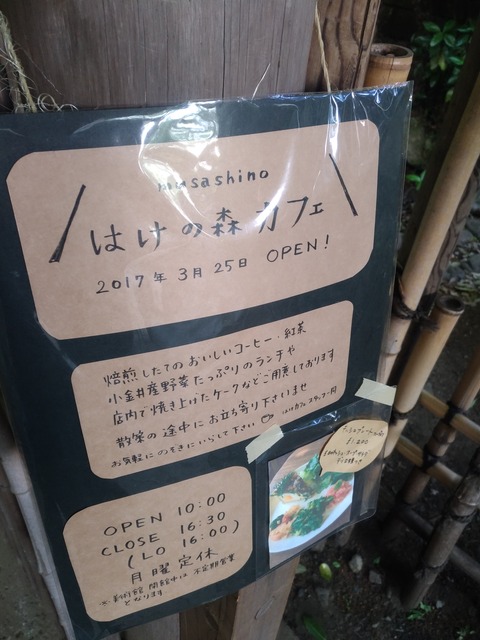 musashino
はけの森カフェ
2017年3月25日 OPEN!
焙煎したてのおいしいコーヒー・紅茶
小金井産野菜たっぷりのランチや
店内で焼き上げたケークなどご用意しております
散策の途中にお立ち寄り下さいませ
お気軽にのぞきにいらして下さい はけカフェスタッフ一同
OPEN 10:00
CLOSE 16:30
(LO 16:00)
月曜定休
※美術館 閉館中は 不定期営業
となります
¥1,200